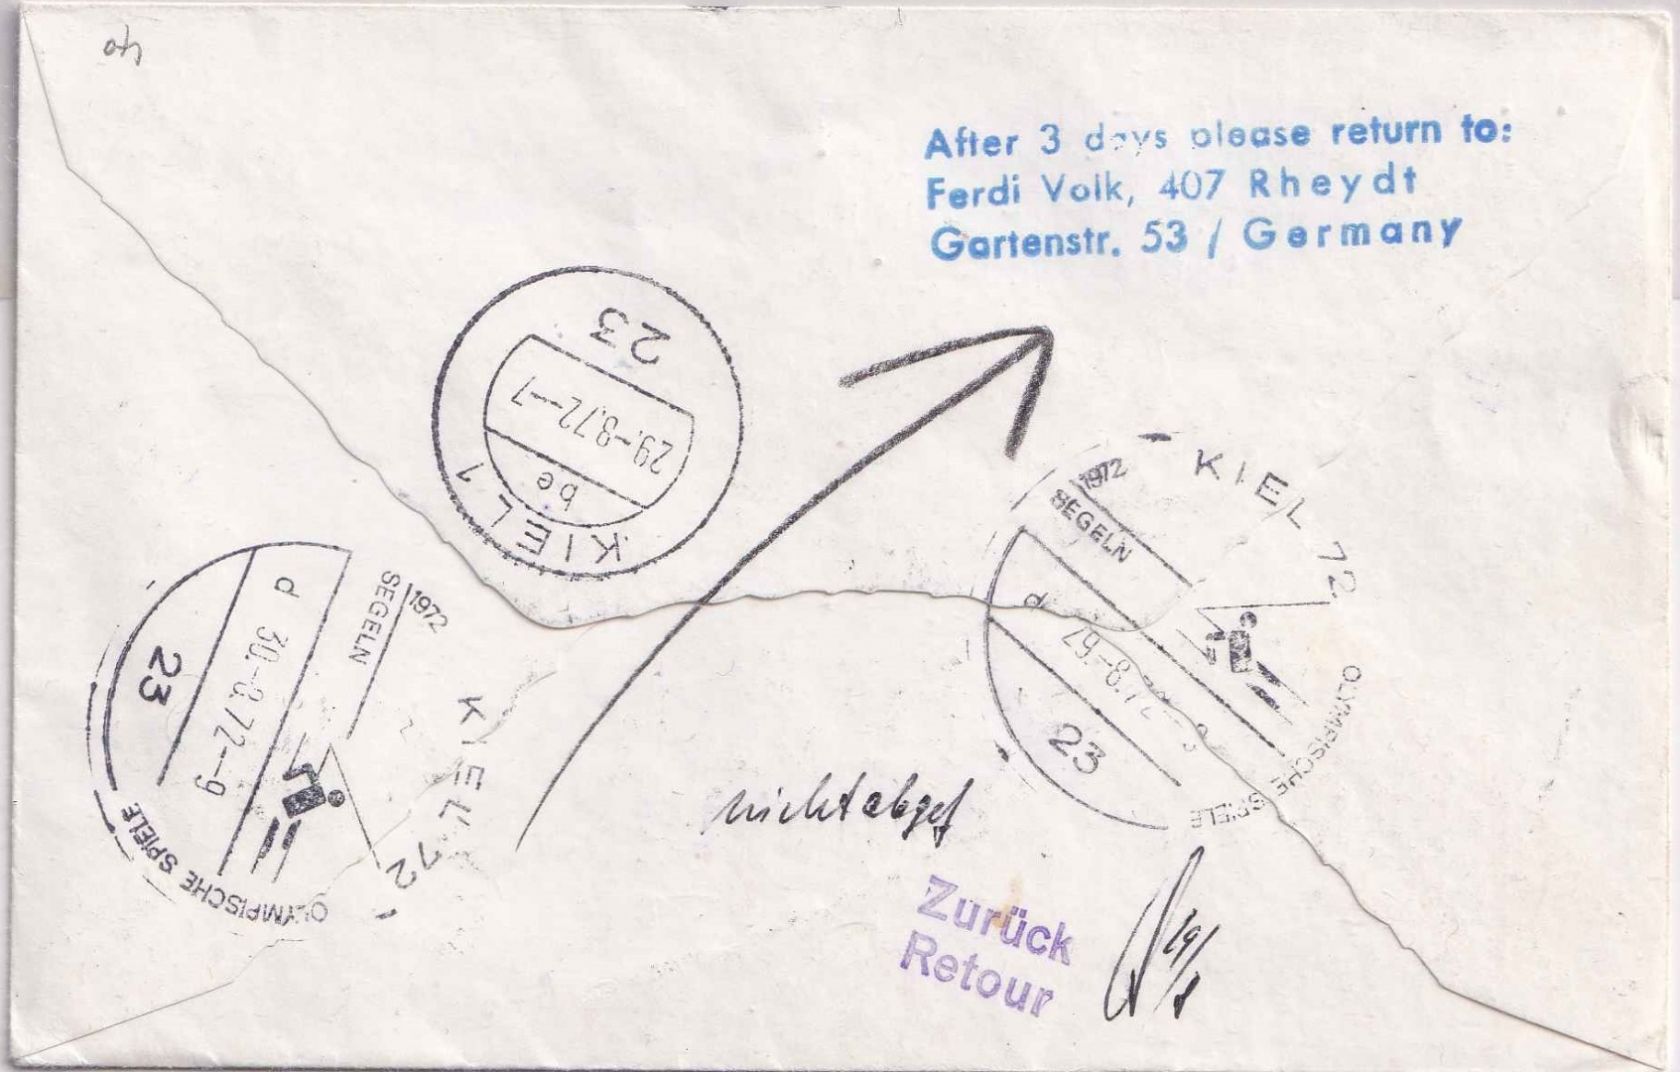 After 3 days please return to:
Ferdi Volk, 407 Rheydt
Gartenstr. 53 / Germany
23
29.-8.72--7
be
KIEL 1
KIEL 72
1972
SEGELN
d
29.-8.72
23
OLYMPISCHE SPIELE
1972
SEGELN
d
30.-8.72--9
23
KIEL 72
OLYMPISCHE SPIELE
nicht abgef
Zurück
Retour
29/8